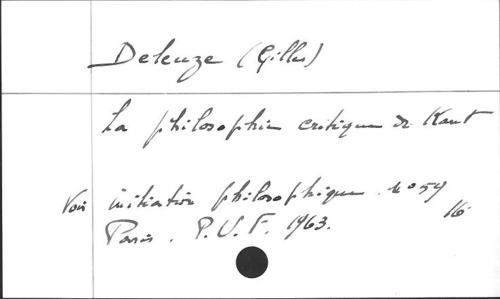 Deleuze (Gilles)
La philosophie critique de Kant
Voir initiation philosophique. no 59
Paris. P.U.F. 1963. 16